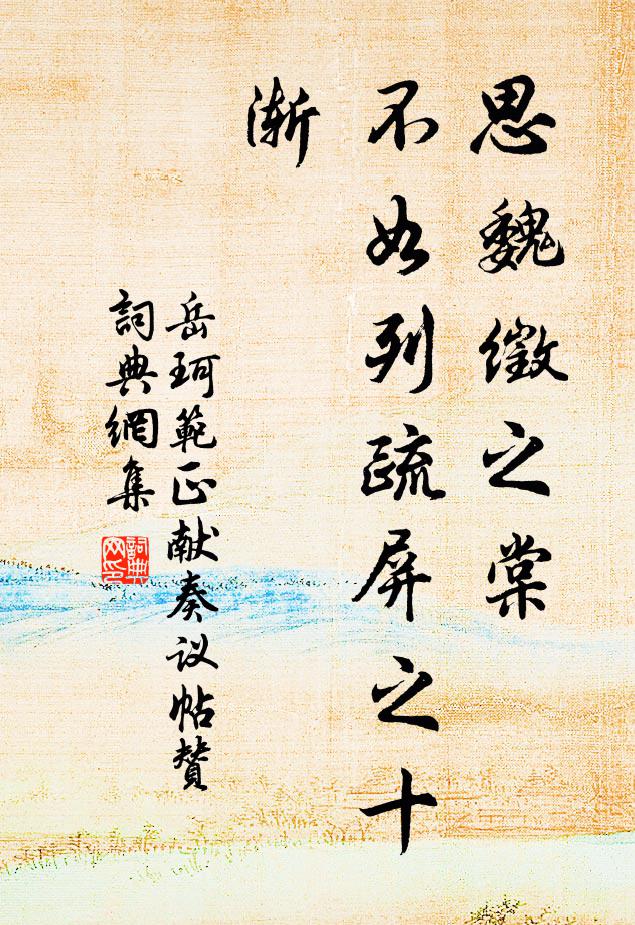 思魏徵之棠
不如列疏屏之十
渐
岳珂範正献奏议帖贊
詞典網集
詞典网印